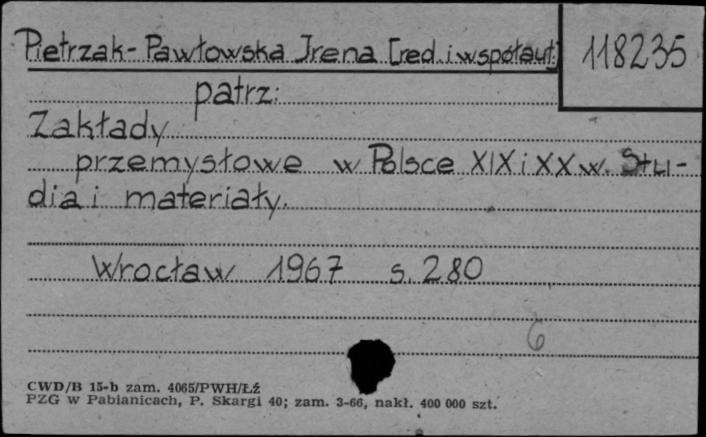 Pietrzak-Pawłowska Irena [red. i współaut.]
118235
patrz:
Zakłady
przemysłowe w Polsce XIX i XX w. Stu-
dia i materiały.
Wrocław 1967 s. 280
6
CWD/B 15-b zam. 4065/PWH/ŁŹ
PZG w Pabianicach, P. Skargi 40; zam. 3-66, nakł. 400 000 szt.